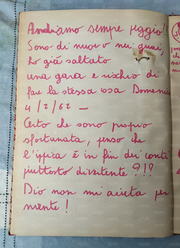 Andiamo sempre peggio!
Sono di nuovo nei guai,
ho già saltato
una gara e rischio di
fare la stessa cosa Domenica
4/2/62 —
Certo che sono proprio
sfortunata, penso che
l'ipira è in fin dei conti
piuttosto divertente?!?
Dio non mi aiuta per
niente!